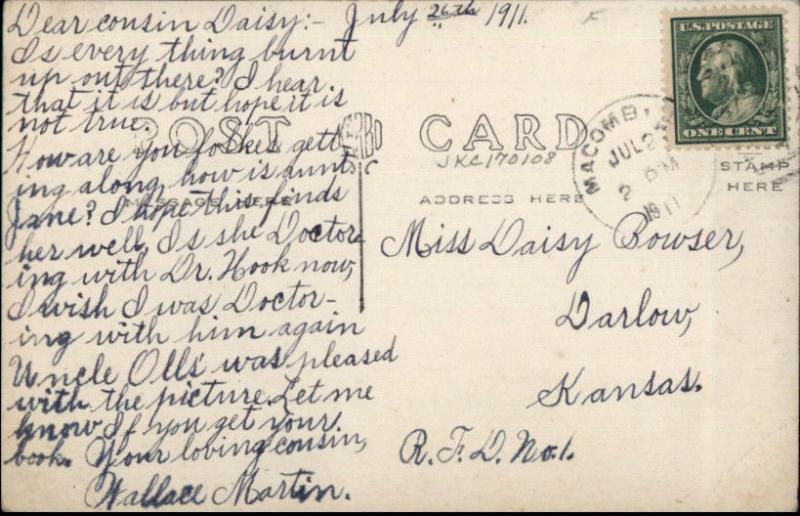 Dear cousin Daisy:- July 26th 1911.
Is every thing burnt
up out there? I hear
that it is but hope it is
not true.
How are you folkes gett-
ing along, how is aunt
Jane? I hope this finds
her well, Is she Doctor-
ing with Dr. Hook now,
I wish I was Doctor-
ing with him again
Uncle Olls' was pleased
with the picture. Let me
know If you get your
book. Your loving cousin,
Wallace Martin.
POST CARD
JKC170108
MESSAGE HERE
ADDRESS HERE
STAMP
HERE
U.S. POSTAGE
ONE CENT
MACOMB,
JUL 2
2 PM
1911
Miss Daisy Bowser,
Darlow,
Kansas.
R.F.D. No 1.